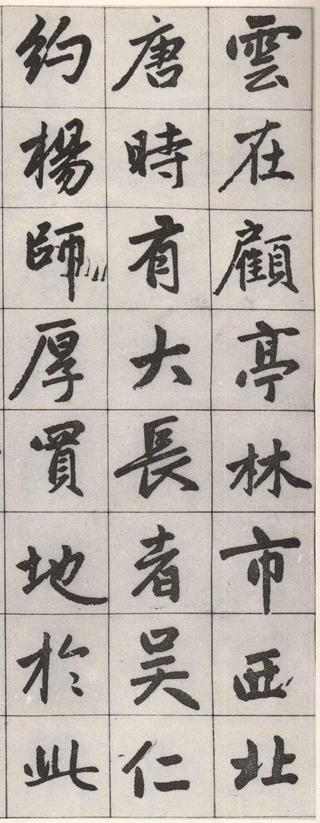 雲在顧亭林市西北
唐時有大長者吴仁
約楊師厚買地於此